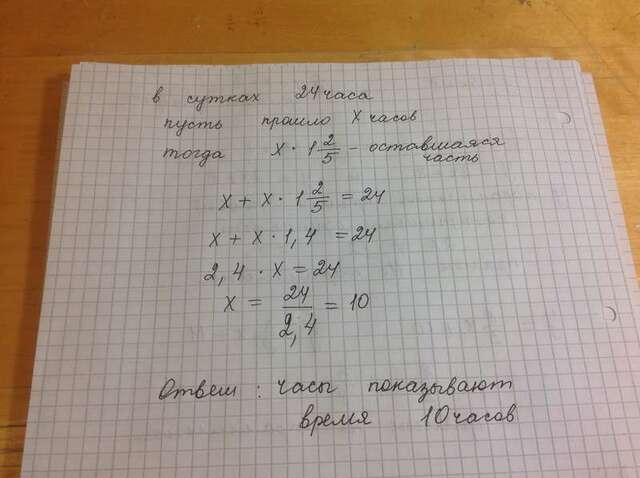 в сутках 24 часа
пусть прошло x часов
тогда x · 1 2/5 - оставшаяся
часть
x + x · 1 2/5 = 24
x + x · 1,4 = 24
2,4 · x = 24
x = 24/2,4 = 10
Ответ : часы показывают
время 10 часов